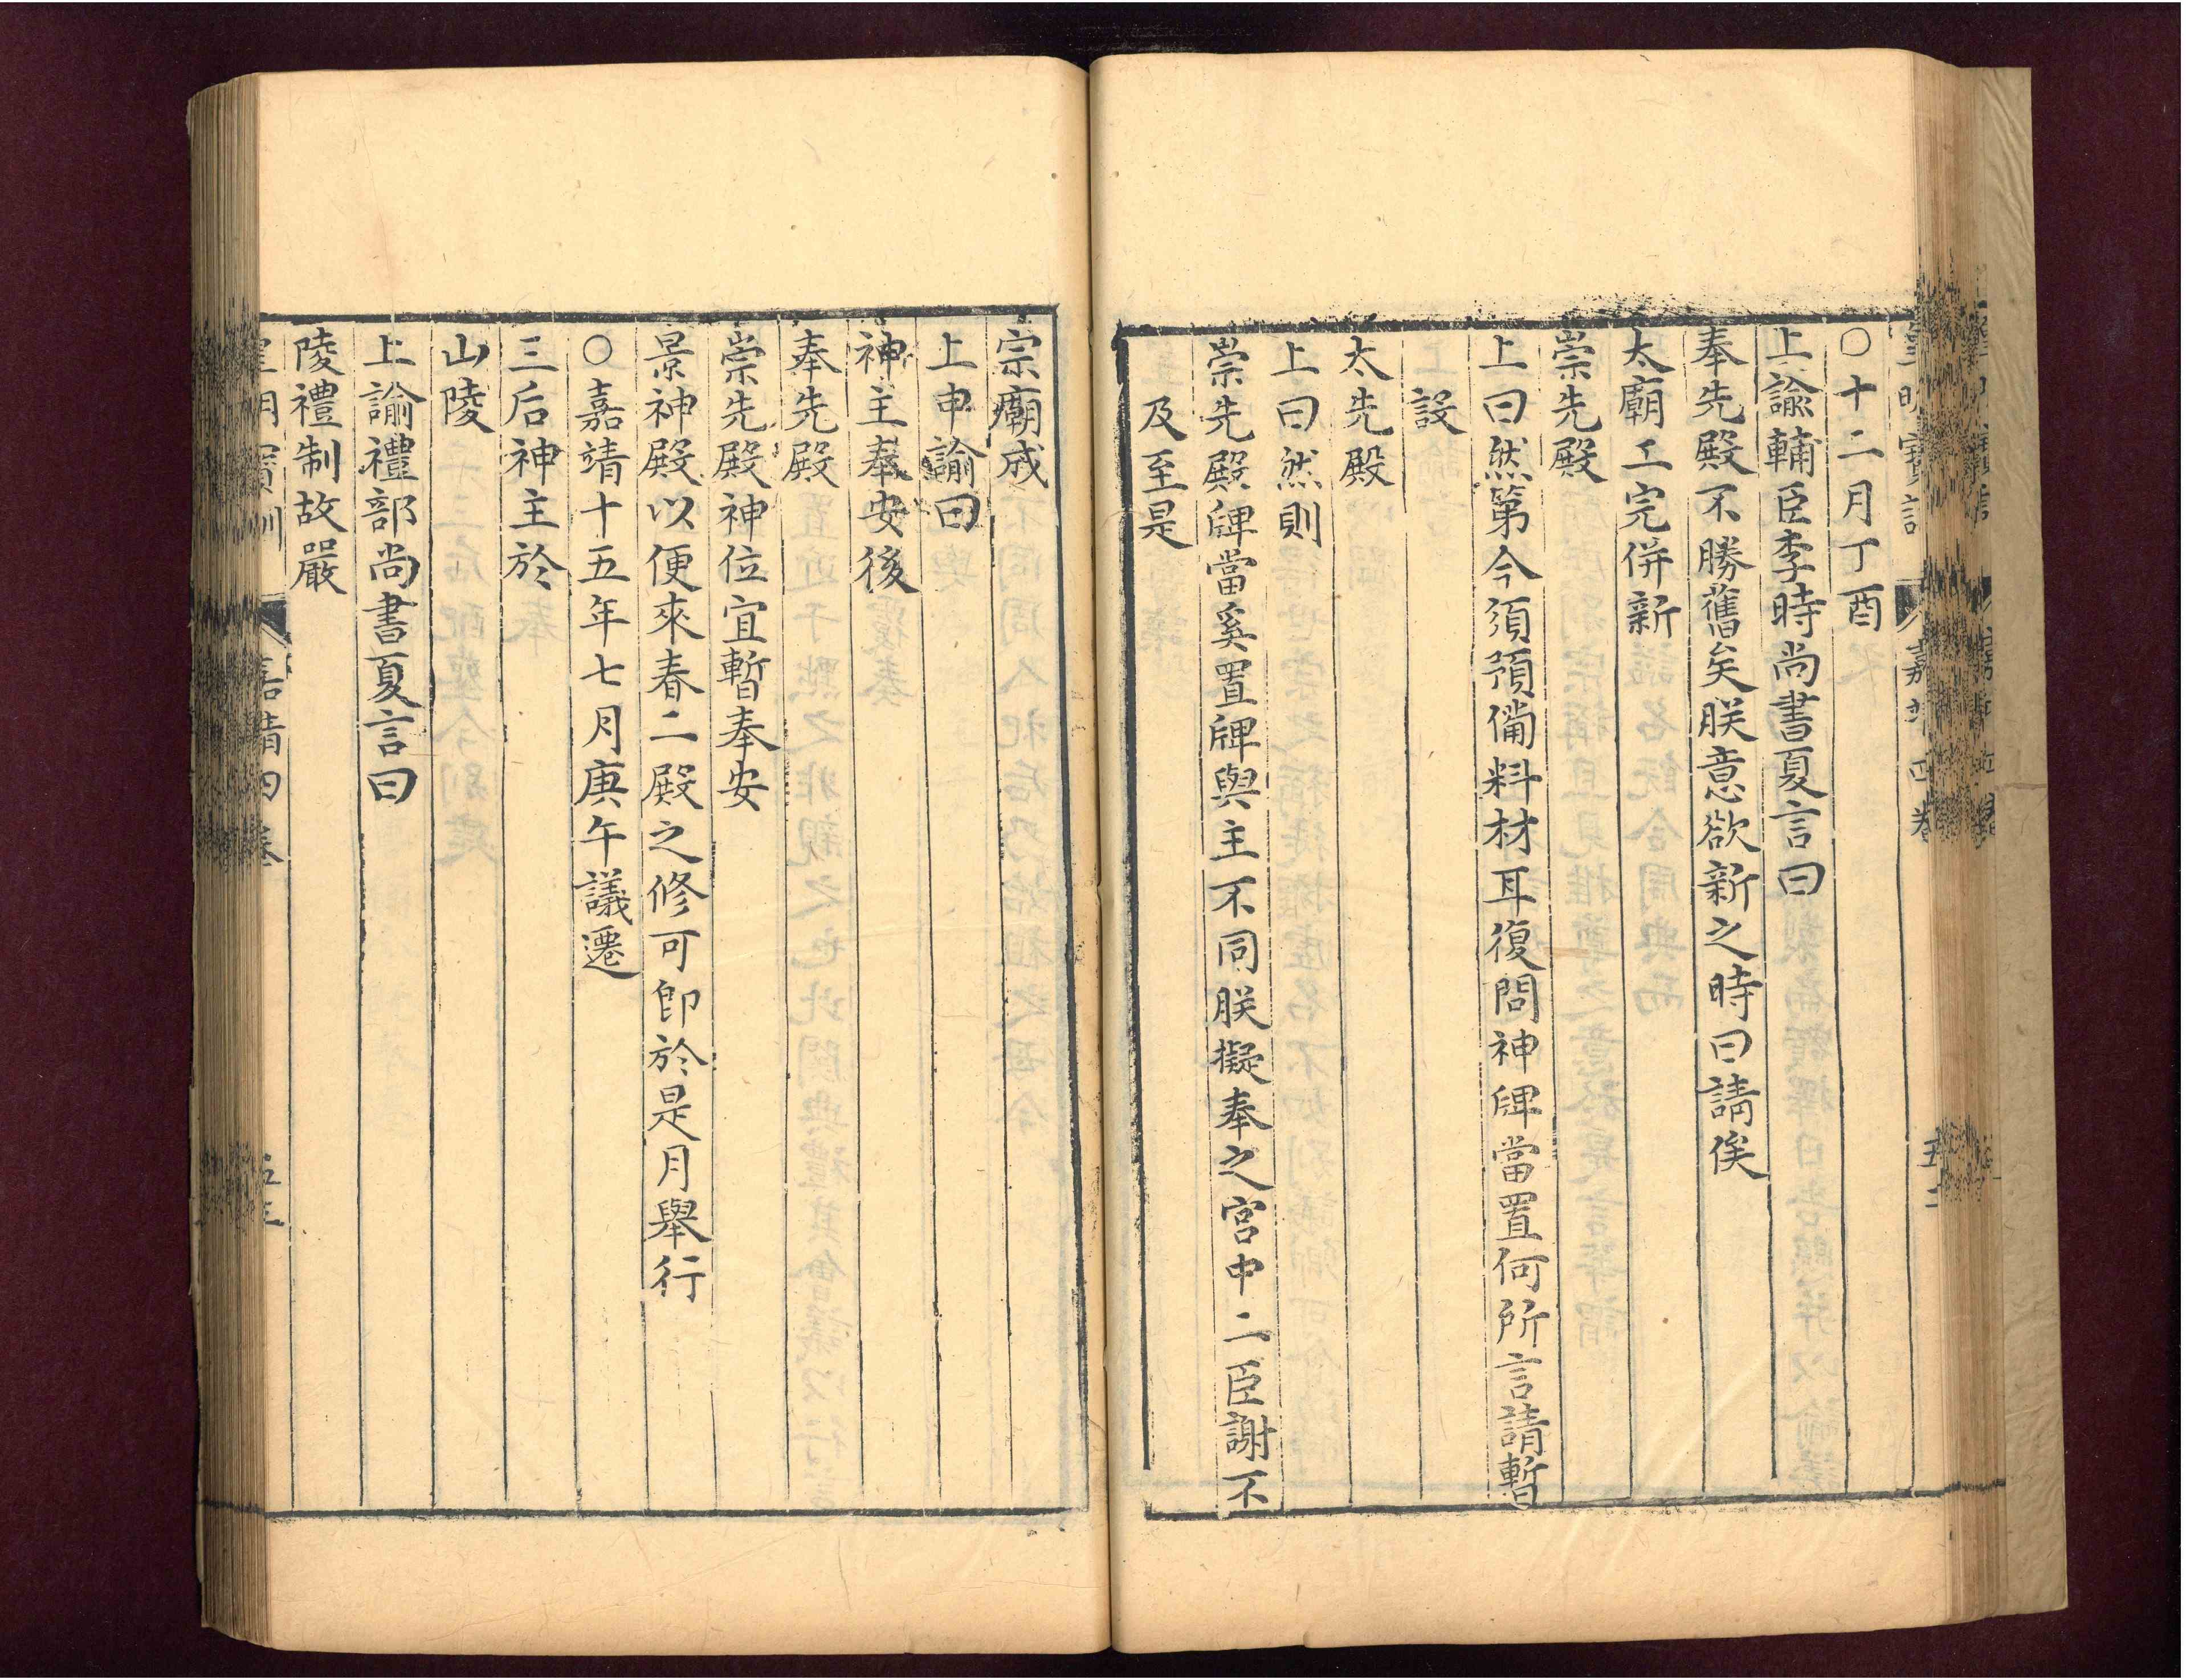 ○十二月丁酉
上諭輔臣李時尚書夏言曰
奉先殿不勝舊矣朕意欲新之時曰請俟
太廟工完併新
崇先殿
上曰然第今須預備料材耳復問神牌當置何所言請暫
設
太先殿
上曰然則
崇先殿牌當奚置牌與主不同朕擬奉之宮中二臣謝不
及至是
宗廟成
上申諭曰
神主奉安後
奉先殿
崇先殿神位宜暫奉安
景神殿以便來春二殿之修可即於是月舉行
○嘉靖十五年七月庚午議遷
三后神主於
山陵
上諭禮部尚書夏言曰
陵禮制故嚴
嘉靖四卷